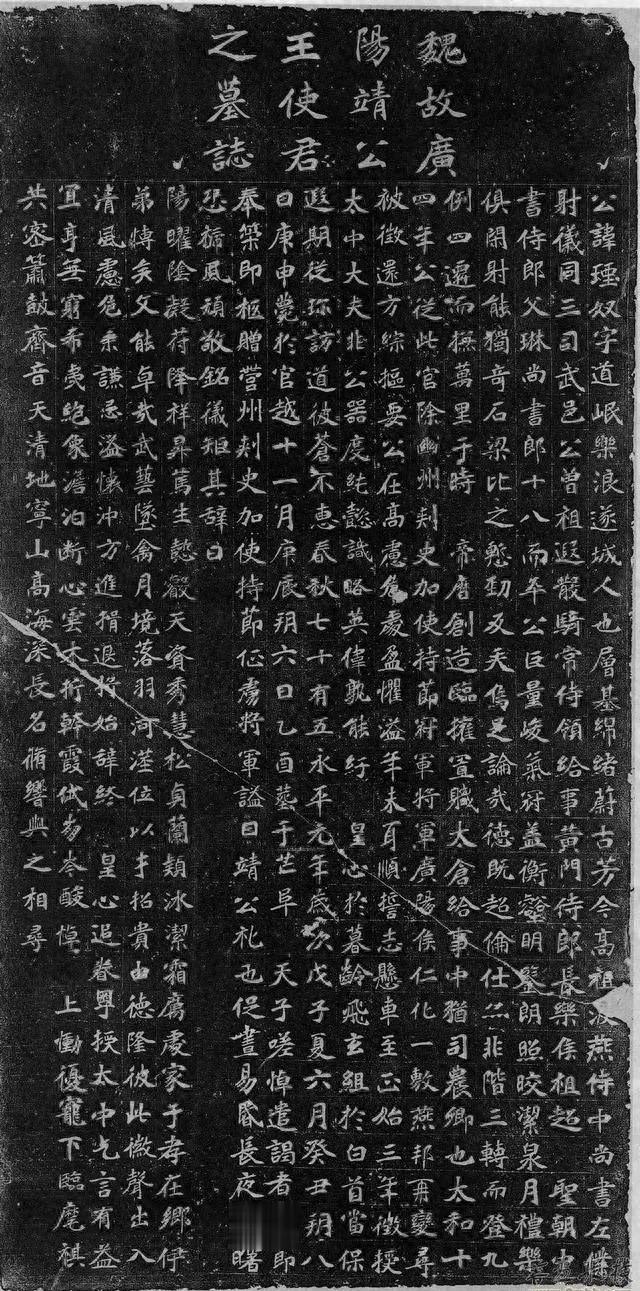 魏故廣
陽靖公
王使君
之墓誌
公諱𤨏奴字道岷樂浪遂城人也層基綿緒蔚古芳今高祖波燕侍中尚書左僕
射儀同三司武邑公曾祖遐散騎常侍領給事黃門侍郎長樂侯祖超 聖朝中
書侍郎父琳尚書郎十八而卒公巨量峻氣冠蓋衡 明鑒朗照皎潔泉月禮樂
俱閑射能獨奇石梁比之懸韌及天傷是論哉德既超倫仕亦非階三轉而登九
例四遷而撫萬里于時 帝曆創造臨擁置職太倉給事中猶司農卿也太和十
四年公從此官除幽州刾史加使持節冠軍將軍廣陽侯仁化一敷燕邦再變尋
被徵還方綜樞要公在高慮危處盈懼溢年未耳順誓志懸車至正始三年徵授
太中大夫非公器度純懿識略英偉孰能紆 皇心於暮齡飛玄組於白首當保
遐期從弥訪道彼蒼不惠春秋七十有五永平元年歲次戊子夏六月癸丑朔八
日庚申薨於官越十一月庚辰朔六日乙酉葬于芒阜 天子嗟悼遣謁者 即
奉策即柩贈營州刾史加使持節征虜將軍謚曰靖公礼也促晝易昏長夜 曙
恐猶風頑敬銘儀矩其辭曰
陽曜陰凝苻降祥昇篤生懿 天資秀慧松貞蘭類冰潔霜厲處家于孝在鄉伊
弟愽矣文能卓哉武藝墜禽月境落羽河滢位以才招貴由德隆彼此微聲出入
清風慮危秉謙忌溢懷沖方進捐退將始辞終 皇心追眷 授太中乞言有益
冝亨無窮希夷絶象澹泊断心雲才折幹霞 岑酸悼 上慟優寵下臨麾祺
共密簫皷齊音天清地寧山高海深長名脩響與之相尋